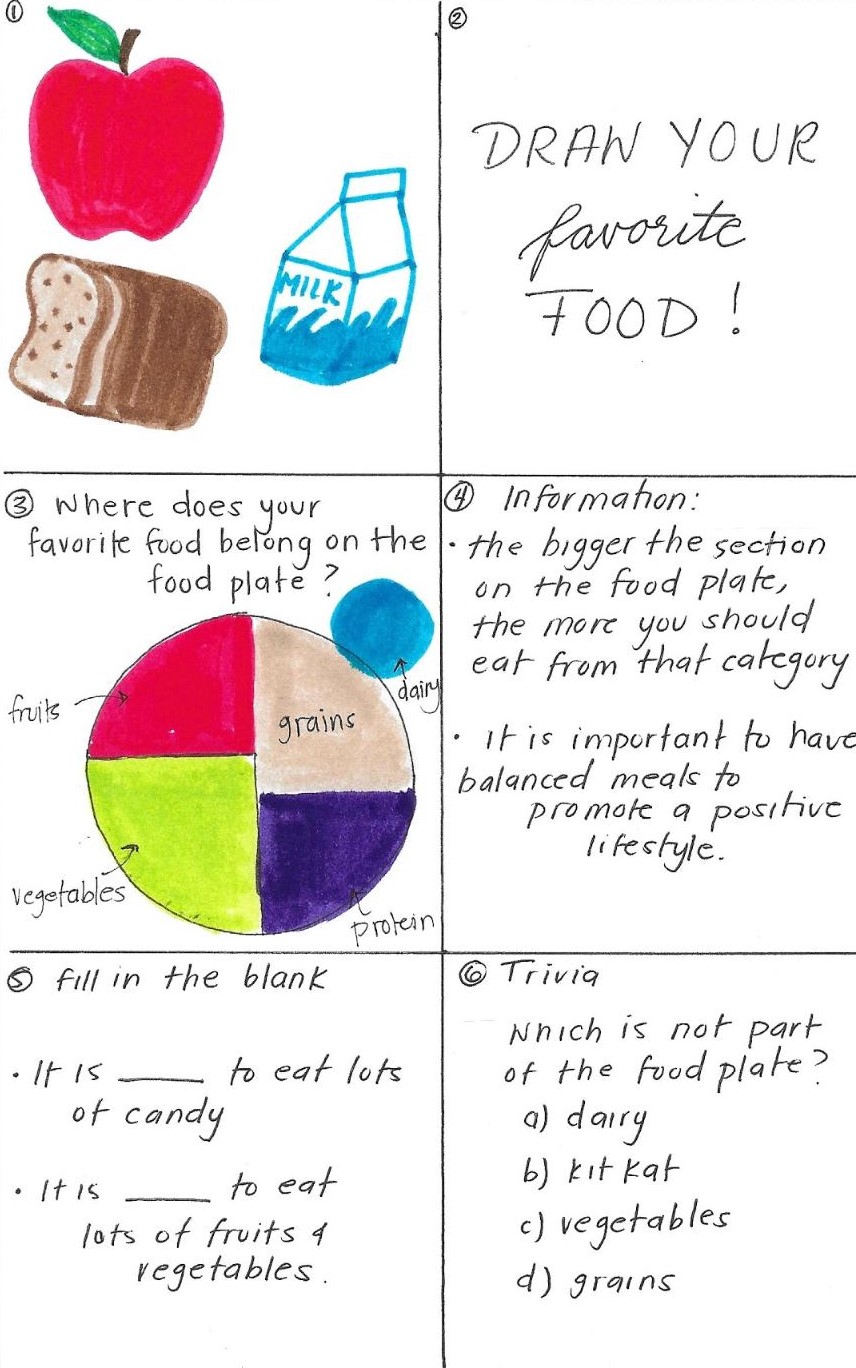 ①
MILK
②
DRAW YOUR
favorite
FOOD!
③ Where does your
favorite food belong on the
food plate?
fruits
grains
dairy
vegetables
protein
④ Information:
• the bigger the section
on the food plate,
the more you should
eat from that category
• It is important to have
balanced meals to
promote a positive
lifestyle.
⑤ fill in the blank
• It is ____ to eat lots
of candy
• It is ____ to eat
lots of fruits &
vegetables.
⑥ Trivia
Which is not part
of the food plate?
a) dairy
b) kit kat
c) vegetables
d) grains